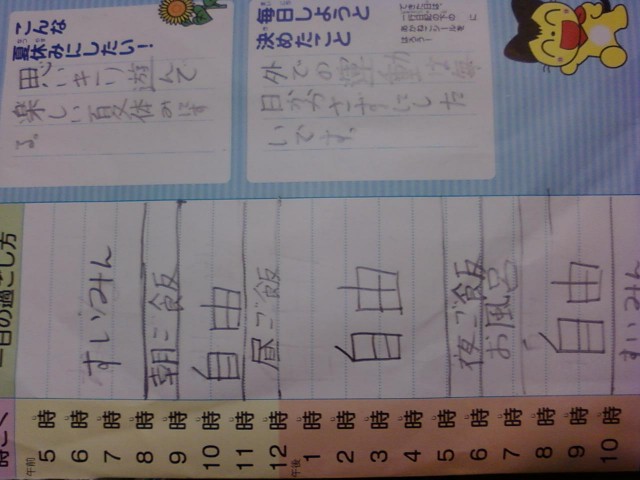 こんな
夏休みにしたい！
思いきり遊んで
楽しい夏休みにす
る。
毎日しようと
決めたこと
できた日は、
一行日記の下の
おかおにシールを
はろう！
外での運動を毎
日かかさずにした
いです。
一日の過ごし方
時こく
午前
5時
6時
7時
8時
9時
10時
11時
12時
午後
1時
2時
3時
4時
5時
6時
7時
8時
9時
10時
すいみん
朝ご飯
自由
昼ご飯
自由
夜ご飯
お風呂
自由
すいみん